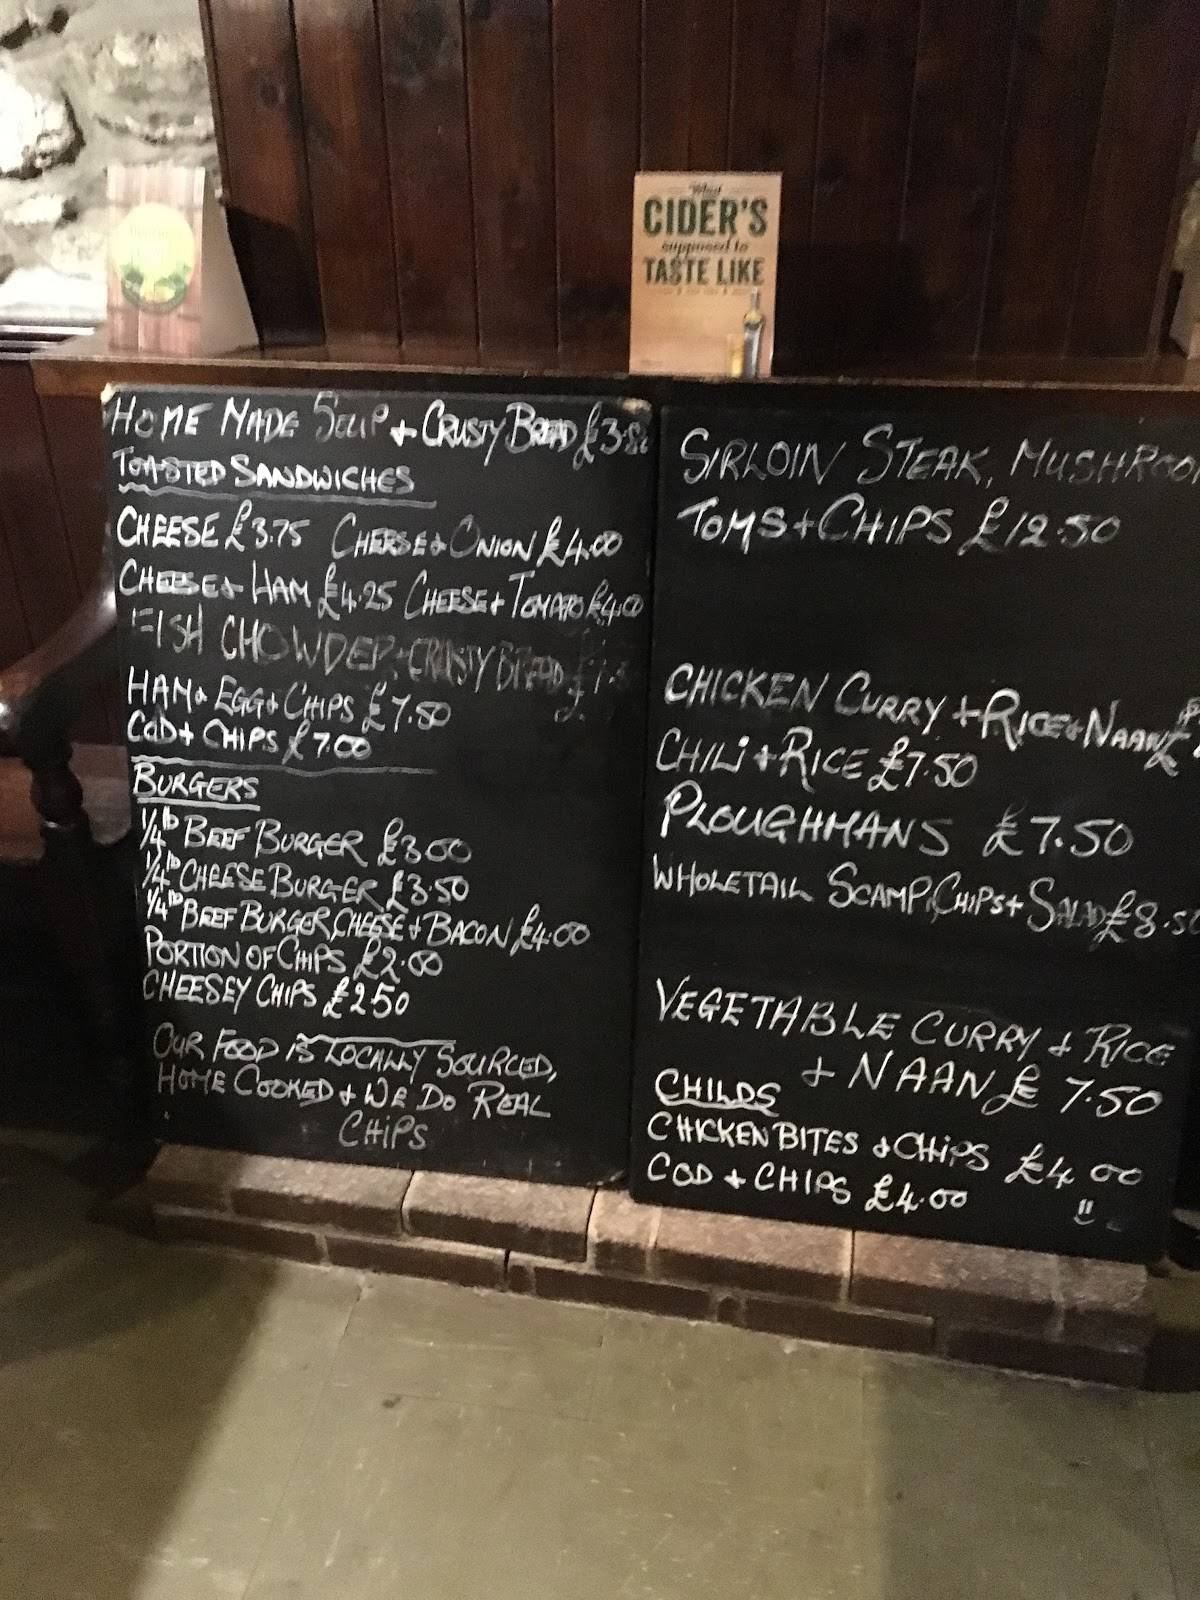 What
CIDER'S
supposed to
TASTE LIKE
HOME MADE SOUP + CRUSTY BREAD
TOASTED SANDWICHES
CHEESE £3.75 CHEESE + ONION £4.00
CHEESE + HAM £4.25 CHEESE + TOMATO £4.00
FISH CHOWDER + CRUSTY BREAD
HAM + EGG + CHIPS £7.50
COD + CHIPS £7.00
BURGERS
1/4 lb BEEF BURGER £3.00
1/4 lb CHEESE BURGER £3.50
1/4 lb BEEF BURGER, CHEESE + BACON £4.00
PORTION OF CHIPS £2.00
CHEESEY CHIPS £2.50
OUR FOOD IS LOCALLY SOURCED,
HOME COOKED + WE DO REAL
CHIPS
SIRLOIN STEAK, MUSHROO
TOMS + CHIPS £12.50
CHICKEN CURRY + RICE + NAAN £
CHILI + RICE £7.50
PLOUGHMANS £7.50
WHOLETAIL SCAMPI, CHIPS + SALAD £8.50
VEGETABLE CURRY + RICE
+ NAAN £7.50
CHILDS
CHICKEN BITES + CHIPS £4.00
COD + CHIPS £4.00